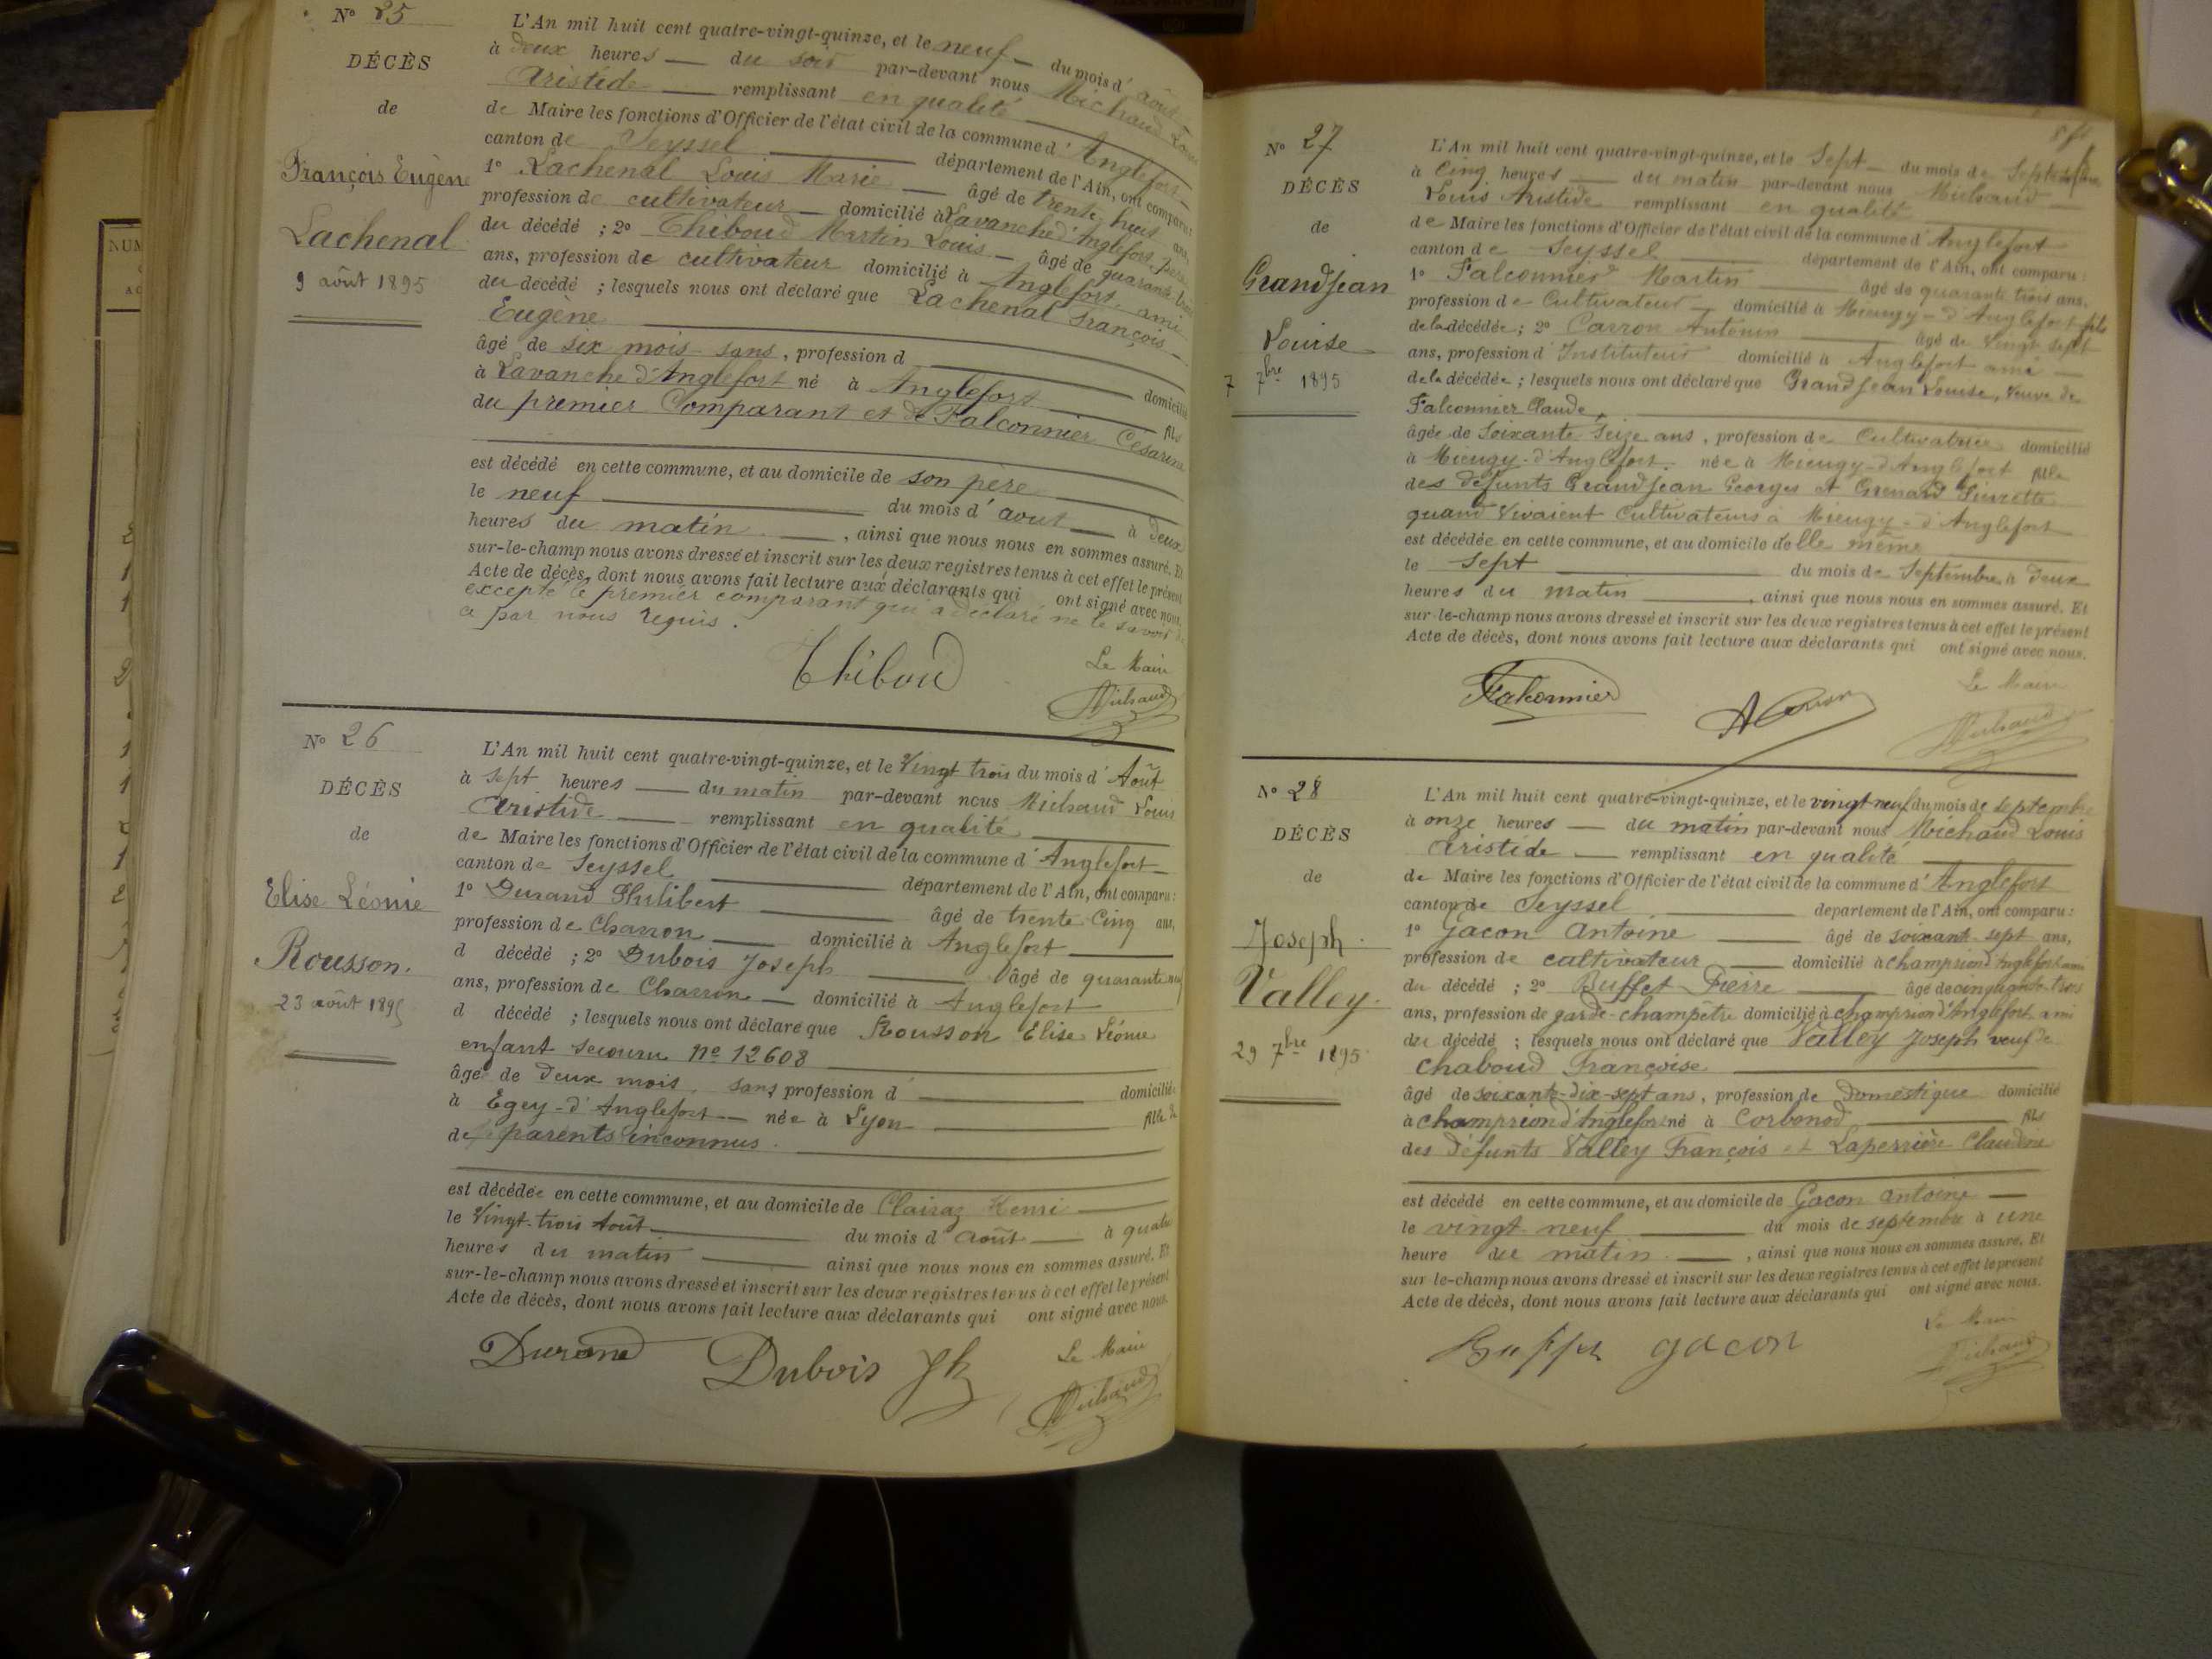 N° 25
DÉCÈS
de
François Eugène
Lachenal
9 août 1895
L'An mil huit cent quatre-vingt-quinze, et le neuf du mois d'août
à deux heures du soir par-devant nous Michaud Louis
Aristide remplissant en qualité
de Maire les fonctions d'Officier de l'état civil de la commune d'Anglefort
canton de Seyssel département de l'Ain, ont comparu :
1° Lachenal Louis Marie âgé de trente huit ans,
profession de cultivateur domicilié à Lavanche d'Anglefort père
du décédé ; 2° Thiboud Martin Louis âgé de quarante trois
ans, profession de cultivateur domicilié à Anglefort ami
du décédé ; lesquels nous ont déclaré que Lachenal François
Eugène
âgé de six mois sans, profession d domicilié
à Lavanche d'Anglefort né à Anglefort fils
du premier Comparant et de Falconnier Césarine
est décédé en cette commune, et au domicile de son père
le neuf du mois d'aout à deux
heures du matin, ainsi que nous nous en sommes assuré. Et
sur-le-champ nous avons dressé et inscrit sur les deux registres tenus à cet effet le présent
Acte de décès, dont nous avons fait lecture aux déclarants qui ont signé avec nous,
excepté le premier comparant qui a déclaré ne le savoir de
ce par nous requis.
Thiboud
Le Maire
Michaud
N° 26
DÉCÈS
de
Elise Léonie
Rousson.
23 août 1895
L'An mil huit cent quatre-vingt-quinze, et le Vingt trois du mois d'Août
à sept heures du matin par-devant nous Michaud Louis
Aristide remplissant en qualité
de Maire les fonctions d'Officier de l'état civil de la commune d'Anglefort
canton de Seyssel département de l'Ain, ont comparu :
1° Durand Philibert âgé de trente cinq ans,
profession de Charron domicilié à Anglefort
d décédé ; 2° Dubois Joseph âgé de quarante neuf
ans, profession de Charron domicilié à Anglefort
d décédé ; lesquels nous ont déclaré que Rousson Elise Léonie
enfant secouru n° 12608
âgé de deux mois sans profession d domiciliée
à Egey-d'Anglefort née à Lyon fille de
de parents inconnus.
est décédée en cette commune, et au domicile de Clairaz Henri
le Vingt-trois Août du mois d'août à quatre
heures du matin ainsi que nous nous en sommes assuré. Et
sur-le-champ nous avons dressé et inscrit sur les deux registres tenus à cet effet le présent
Acte de décès, dont nous avons fait lecture aux déclarants qui ont signé avec nous.
Durand Dubois Jh
Le Maire
Michaud
N° 27
DÉCÈS
de
Grandjean
Louise
7 7bre 1895
L'An mil huit cent quatre-vingt-quinze, et le Sept du mois de Septembre
à Cinq heures du matin par-devant nous Michaud
Louis Aristide remplissant en qualité
de Maire les fonctions d'Officier de l'état civil de la commune d'Anglefort
canton de Seyssel département de l'Ain, ont comparu :
1° Falconnier Martin âgé de quarante trois ans,
profession de Cultivateur domicilié à Mieugy-d'Anglefort fils
de la décédée ; 2° Carron Antonin âgé de Vingt sept
ans, profession d'Instituteur domicilié à Anglefort ami
de la décédée ; lesquels nous ont déclaré que Grandjean Louise, Veuve de
Falconnier Claude,
âgée de Soixante Seize ans, profession de Cultivatrice domicilié
à Mieugy-d'Anglefort. née à Mieugy-d'Anglefort fille
des défunts Grandjean Georges et Grenard Pierrette
quand Vivaient Cultivateurs à Mieugy-d'Anglefort
est décédée en cette commune, et au domicile d'elle même
le Sept du mois de Septembre à deux
heures du matin, ainsi que nous nous en sommes assuré. Et
sur-le-champ nous avons dressé et inscrit sur les deux registres tenus à cet effet le présent
Acte de décès, dont nous avons fait lecture aux déclarants qui ont signé avec nous.
Falconnier
A Carron
Le Maire
Michaud
N° 28
DÉCÈS
de
Joseph
Valley.
29 7bre 1895
L'An mil huit cent quatre-vingt-quinze, et le vingt neuf du mois de septembre
à onze heures du matin par-devant nous Michaud Louis
Aristide remplissant en qualité
de Maire les fonctions d'Officier de l'état civil de la commune d'Anglefort
canton de Seyssel département de l'Ain, ont comparu :
1° Gacon Antoine âgé de soixant sept ans,
profession de cultivateur domicilié à champriond'Anglefort ami
du décédé ; 2° Buffet Pierre âgé de cinquante-trois
ans, profession de garde-champêtre domicilié à champriond'Anglefort ami
du décédé ; lesquels nous ont déclaré que Valley Joseph veuf de
Chaboud Françoise
âgé de soixante-dix-sept ans, profession de Domestique domicilié
à champriond'Anglefort né à Corbonod fils
des défunts Valley François et Laperrière Claudine
est décédé en cette commune, et au domicile de Gacon Antoine
le vingt neuf du mois de septembre à une
heure du matin, ainsi que nous nous en sommes assuré. Et
sur-le-champ nous avons dressé et inscrit sur les deux registres tenus à cet effet le présent
Acte de décès, dont nous avons fait lecture aux déclarants qui ont signé avec nous.
Buffet gacon
Le Maire
Michaud